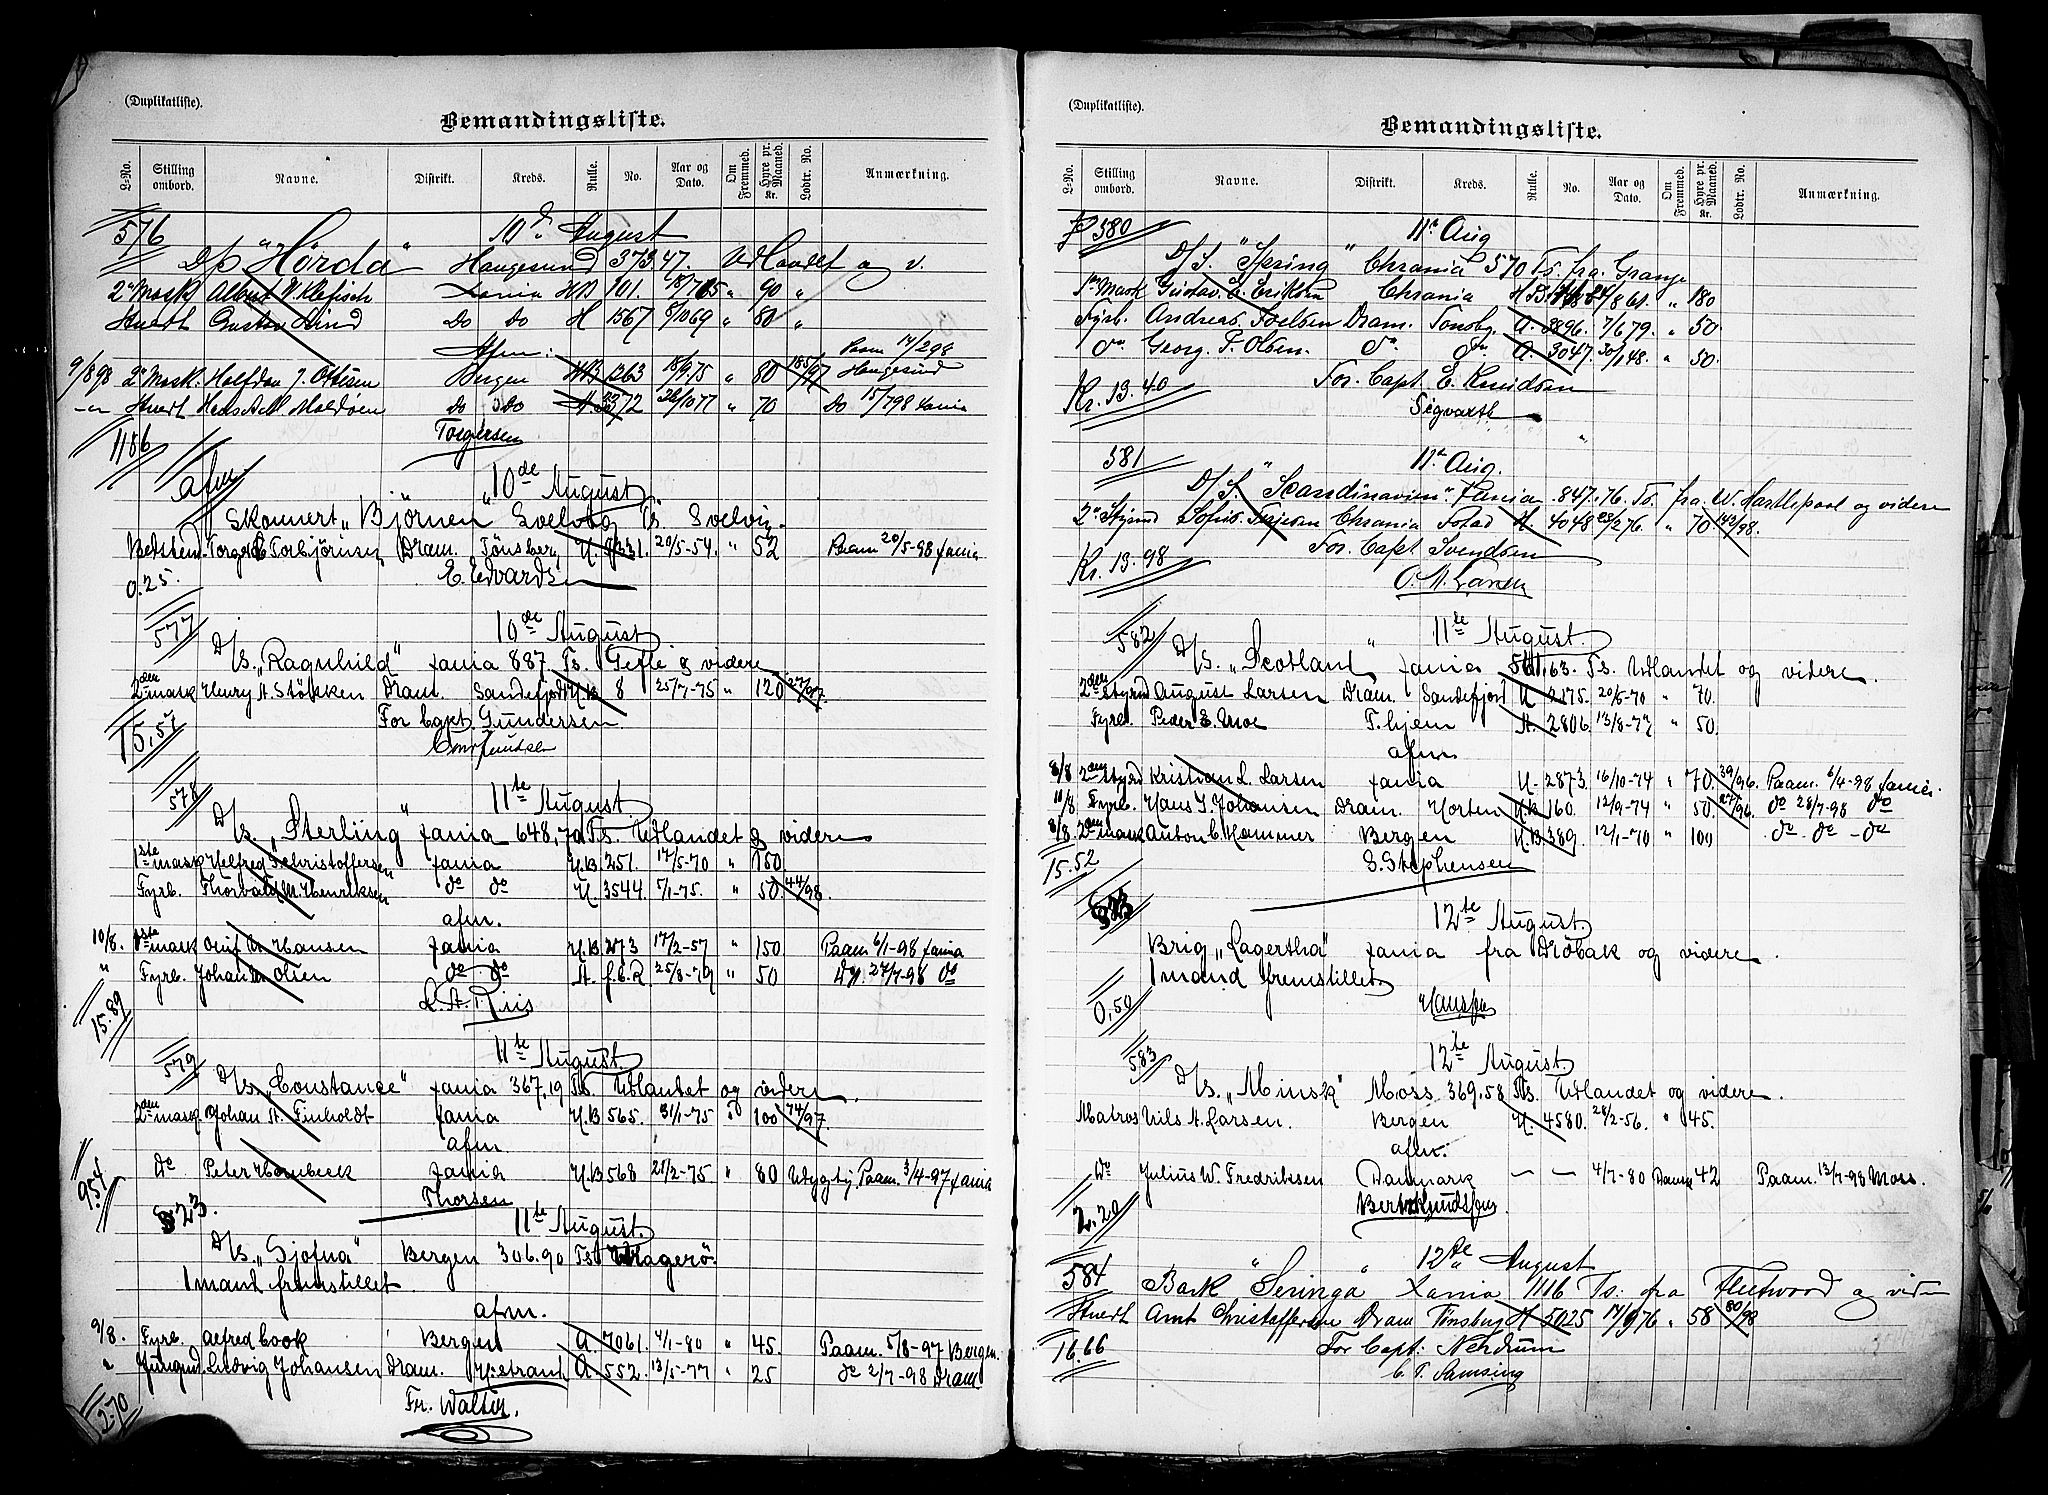 (Duplikatliste).
Bemandingsliste.
L-No. Stilling ombord. Navne. Distrikt. Kreds. Rulle. No. Aar og Dato. Om Fremmed. Hyre pr. Maaned. Kr. Lodtr. No. Anmærkning.
576 10de August
D/S "Hörda" Haugesund 373,47. Udlandet og v.
2n Mask Albert W. Klefisch Xania HB 101. " 90 "
Stuert Gustav Lind Do Do H 1567 8/10 69 " 80 "
Afm: Paam 14/2 98
9/8 98 2n Mask. Halfdan J. Ottesen Bergen HB 1363 18/9 75 " 80 185/97 Haugesund
Stuert Do Do A. 3372 26/10 77 " 70 Do 15/7 98 Xania
11,86 Torgersen
afm 10de August
Skonnert "Björnen" Svelvig Ts Svelvig.
Bedstem. Torger E Torbjörnsen Dram. Tönsberg H. 20/5-54. " 52 Paam 20/5-98 Xania
0.25. E. Edvardsen
577 10de August
D/S. "Ragnhild" Xania 887. Ts. Gefle & videre
2den mask Henry A. Stökken Dram. Sandefjord H.B 8 25/7-75 " 120 27/97.
For Capt. Gundersen
15,57
578 11te August
D/S. "Sterling" Xania 648,70 Ts. Udlandet & videre
1ste mask Helfred Christoffersen Xania H.B 251. 17/5-70 " 150
Fyrb. Thorvald M. Henriksen do do H. 3544 5/1-75. " 50 44/98.
afm.
10/8. 1ste mask Oluf M Hansen Xania H.B 273 17/2-57 " 150 Paam 6/1-98 Xania
" Fyrb. Johan Olsen do do A. f.C.R 25/8-79 " 50 Do. 27/7-98 do
15.89 L. A. Riis
579 11te August
D/S. "Constance" Xania 367,19 Ts. Udlandet og videre.
2den mask. Johan A. Finholdt Xania H.B 565. 31/1-75 " 100 74/97.
afm.
do Peter Hornbeck Xania H.B 568 21/2-75 " 80 Udygtig Paam. 3/4-97 Xania
9.54 Thorsen
523. 11te August.
D/S. "Gjofna" Bergen 306.90 Ts Kragerö.
1 mand fremstillet.
afm.
9/8. Fyrb. Alfred Cook Bergen A. 7061. 4/1-80 " 45. Paam. 5/8-97 Bergen.
" Jungmd. Ludvig Johansen Dram. H.strand A. 552. 13/5-77 " 25 do 2/7-98 Dram
2.70 Fr. Walter.
(Duplikatliste).
Bemandingsliste.
L-No. Stilling ombord. Navne. Distrikt. Kreds. Rulle. No. Aar og Dato. Om Fremmed. Hyre pr. Maaned. Kr. Lodtr. No. Anmærkning.
580 11te Aug
D/S. "Spring" Chrania 570 Ts. fra Grange
1ste Mask Gustav A. Eriksen Chrania H.B. " 180
Fyrb. Andreas Joelsen Dram. Tonsbg. A. 3896. 7/6 79. " 50
do Georg P. Olsen. do do A. 3047. 30/1 48. " 50.
For Capt E. Knudsen
Kr. 13.40 Sigvarth
581 11te Aug.
D/S. "Scandinavien" Xania 847.76. Ts. fra W. Hartlepool og videre
2n Styrmd Sofus Chrania H. 4048 " 70 142/98.
For Capt Svendsen
Kr. 13.98 O. M. Larsen
582 11te August
D/S. "Scotland" Xania 561.63. Ts. Udlandet og videre.
2den Styrmd August Larsen Dram. Sandefjord H 2175. 20/5-70 " 70.
Fyrb. Peder E. Moe T.hjem A. 2806. 13/8-77 " 50.
afm.
8/8 2den Styrmd Kristian L. Larsen Xania H. 2873. 16/10-74 " 70. 39/96. Paam. 6/4-98 Xania.
10/8. Fyrb. Hans J. Johansen Dram. Horten H.B 160. 12/9-74 " 50. do 28/7-98 do
8/8. 2den mask Anton C. Hammer Bergen H.B 389. 12/1-70 " 100 do - do - do
15.52 S. Stephensen
12te August.
Brig "Lagertha" Xania fra Dröbak og videre.
1 mand fremstillet.
0,50
583 12te August.
D/S. "Minsk" Moss 369.58 Ts. Udlandet og videre.
Matros Nils A. Larsen. Bergen H. 4580. 28/2-56. " 45.
afm.
do Julius W. Fredriksen Danmark — — 4/7-80 Dansk 42 Paam. 13/7-98 Moss.
2.20
584 12te August
Bark "Seringa" Xania 1116 Ts. fra Fleetwood og videre
Stuert Arnt Christoffersen Dram Tönsberg H 5025 17/9 76 " 58 80/98
16.66 For Capt: Nerdrum
C. T. Samsing